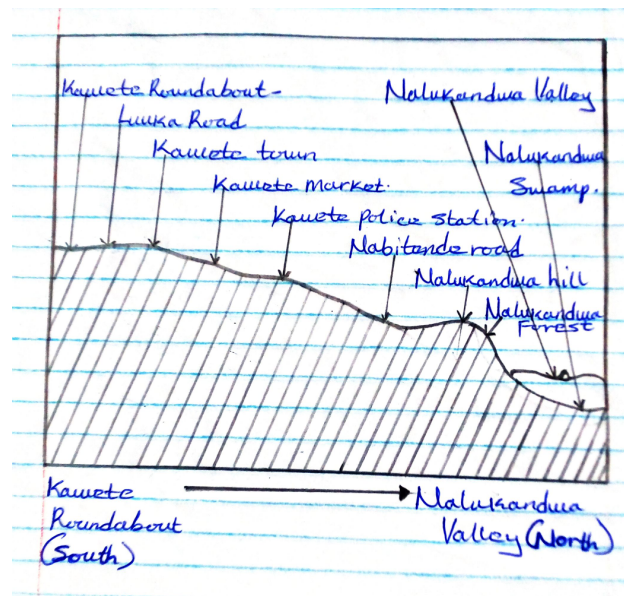 Kawete Roundabout-
Luuka Road
Kawete town
Kawete market.
Kawete police station.
Nabitende road
Nalukandwa hill
Nalukandwa
Forest
Nalukandwa Valley
Nalukandwa
Swamp.
Kawete
Roundabout
(South)
Nalukandwa
Valley (North)